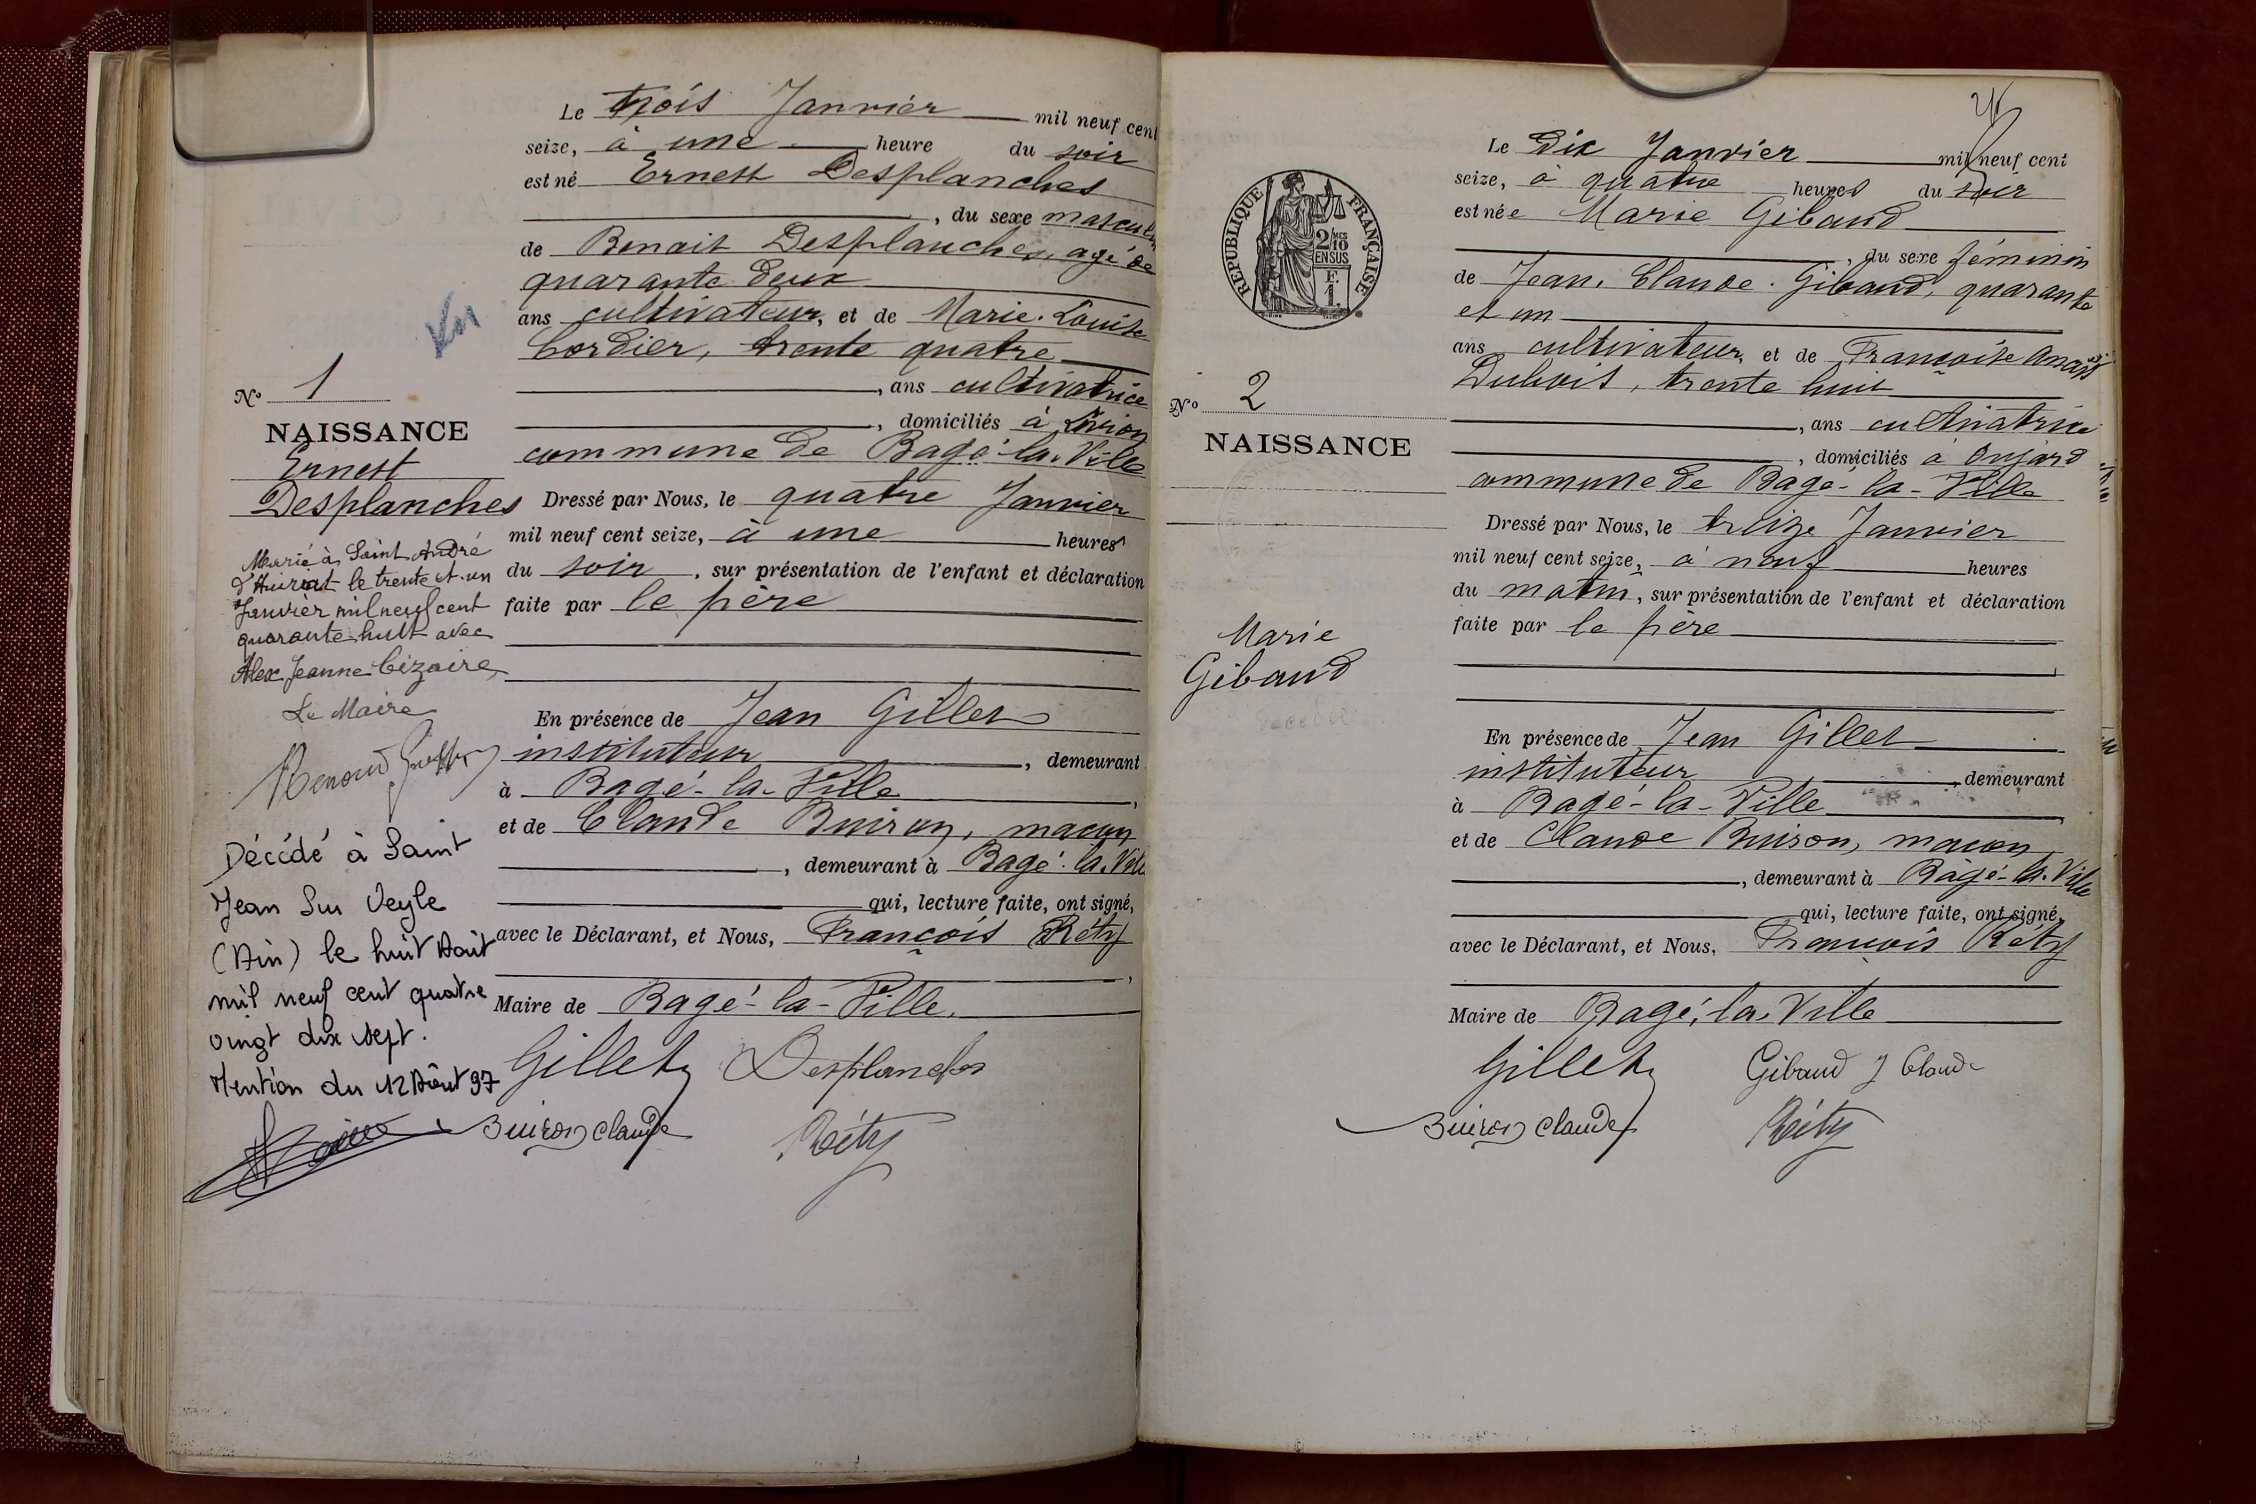 Le trois Janvier mil neuf cent
seize, à une heure du soir
est né Ernest Desplanches
, du sexe masculin
de Benoit Desplanches, agé de
quarante deux
ans cultivateur, et de Marie Louise
Cordier, trente quatre
, ans cultivatrice
, domiciliés à
commune de Bagé-la-Ville
Dressé par Nous, le quatre Janvier
mil neuf cent seize, à une heures
du soir, sur présentation de l'enfant et déclaration
faite par le père
En présence de Jean Gillet
instituteur, demeurant
à Bagé-la-Ville,
et de Claude Buiron, maçon
, demeurant à Bagé-la-Ville
qui, lecture faite, ont signé,
avec le Déclarant, et Nous, François Réty
,
Maire de Bagé-la-Ville.
Gillet Desplanches
Buiron Claude Réty
No 1
NAISSANCE
Ernest
Desplanches
Marié à Saint André
d'Huiriat le trente et un
Janvier mil neuf cent
quarante huit avec
Alex Jeanne Cézaire
Le Maire
Décédé à Saint
Jean Sur Veyle
(Ain) le huit Août
mil neuf cent quatre
vingt dix sept.
Mention du 12 Août 97
Le dix Janvier mil neuf cent
seize, à quatre heures du soir
est née Marie Gibaud
, du sexe féminin
de Jean Claude Gibaud, quarante
et un
ans cultivateur, et de Françoise
Dubois, trente huit
, ans cultivatrice
, domiciliés à Onjard
commune de Bagé-la-Ville
Dressé par Nous, le treize Janvier
mil neuf cent seize, à neuf heures
du matin, sur présentation de l'enfant et déclaration
faite par le père
En présence de Jean Gillet
instituteur, demeurant
à Bagé-la-Ville,
et de Claude Buiron, maçon,
, demeurant à Bagé-la-Ville
qui, lecture faite, ont signé,
avec le Déclarant, et Nous, François Réty
Maire de Bagé-la-Ville
Gillet Gibaud J Claude
Buiron Claude Réty
RÉPUBLIQUE FRANÇAISE
2/10 MES
EN SUS
F.
1.
No 2
NAISSANCE
Marie
Gibaud